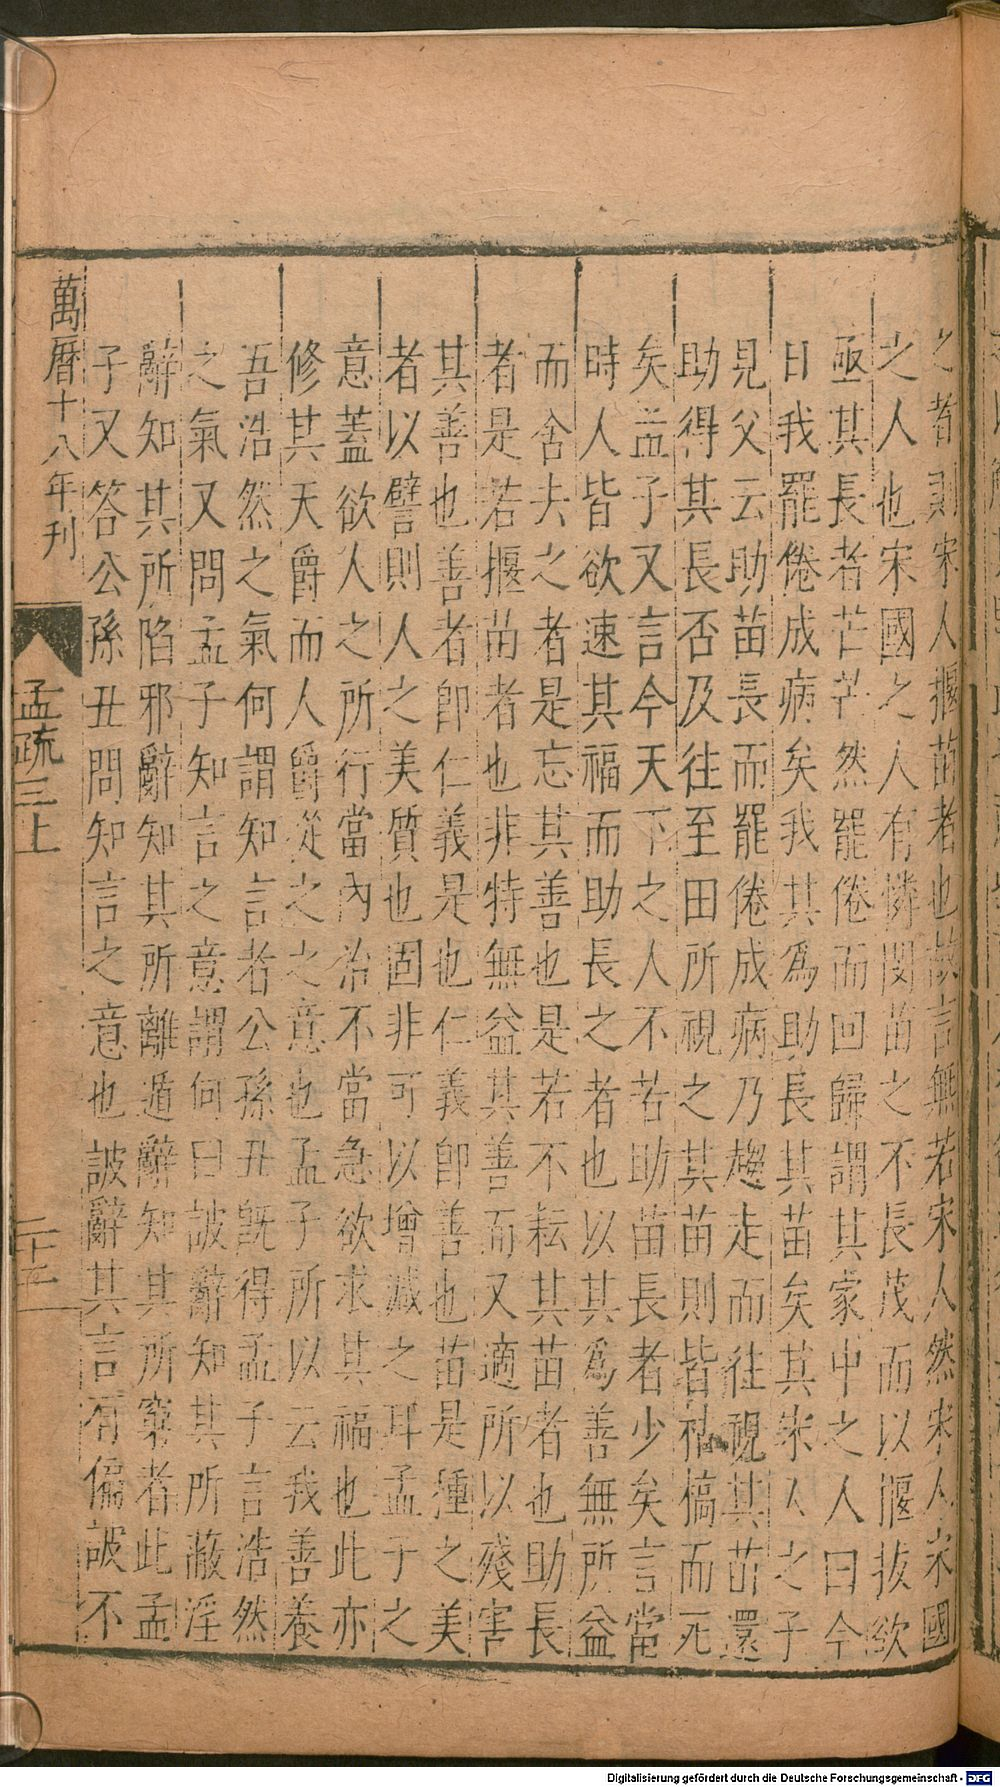 之者則宋人揠苗者也故言無若宋人然宋人宋國
之人也宋國之人有憐閔苗之不長茂而以揠拔欲
亟其長者芒芒然罷倦而回歸謂其家中之人曰今
日我罷倦成病矣我其為助長其苗矣其宋人之子
見父云助苗長而罷倦成病乃趨走而往視其苗還
助得其長否及往至田所視之其苗則皆枯槁而死
矣孟子又言今天下之人不若助苗長者少矣言當
時人皆欲速其福而助長之者也以其為善無所益
而舍去之者是忘其善也是若不耘其苗者也助長
者是若揠苗者也非特無益其善而又適所以殘害
其善也善者即仁義是也仁義即善也苗是種之美
者以譬則人之美質也固非可以增減之耳孟子之
意蓋欲人之所行當內治不當急欲求其福也此亦
修其天爵而人爵從之之意也孟子所以云我善養
吾浩然之氣何謂知言者公孫丑既得孟子言浩然
之氣又問孟子知言之意謂何曰詖辭知其所蔽淫
辭知其所陷邪辭知其所離遁辭知其所窮者此孟
子又答公孫丑問知言之意也詖辭其言有偏詖不
萬曆十八年刊
孟疏三上
二十五
Digitalisierung gefördert durch die Deutsche Forschungsgemeinschaft - DFG